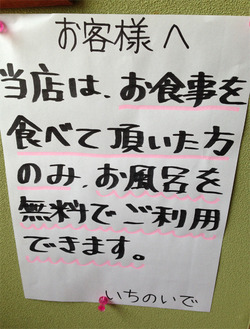 お客様へ
当店は、お食事を
食べて頂いた方
のみ、お風呂を
無料でご利用
できます。
いちのいで